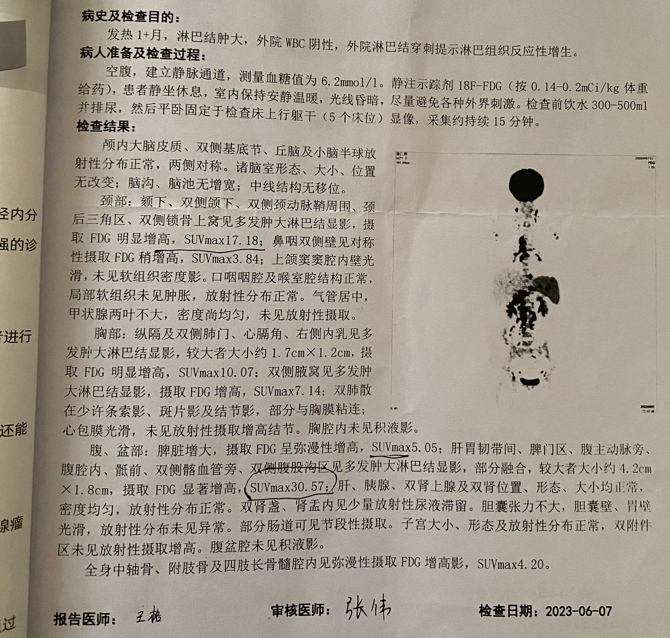 病史及检查目的：
发热1+月，淋巴结肿大，外院WBC阴性，外院淋巴结穿刺提示淋巴组织反应性增生。
病人准备及检查过程：
空腹，建立静脉通道，测量血糖值为6.2mmol/l。静注示踪剂18F-FDG（按0.14-0.2mCi/kg体重
给药），患者静坐休息，室内保持安静温暖，光线昏暗，尽量避免各种外界刺激。检查前饮水300-500ml
并排尿，然后平卧固定于检查床上行躯干（5个床位）显像，采集约持续15分钟。
检查结果：
颅内大脑皮质、双侧基底节、丘脑及小脑半球放
射性分布正常，两侧对称。诸脑室形态、大小、位置
无改变；脑沟、脑池无增宽；中线结构无移位。
颈部：颏下、双侧颌下、双侧颈动脉鞘周围、颈
后三角区、双侧锁骨上窝见多发肿大淋巴结显影，摄
取FDG明显增高，SUVmax17.18；鼻咽双侧壁见对称
性摄取FDG稍增高，SUVmax3.84；上颌窦窦腔内壁光
滑，未见软组织密度影。口咽咽腔及喉室腔结构正常，
局部软组织未见肿胀，放射性分布正常。气管居中，
甲状腺两叶不大，密度尚均匀，未见放射性摄取。
胸部：纵隔及双侧肺门、心膈角、右侧内乳见多
发肿大淋巴结显影，较大者大小约1.7cm×1.2cm，摄
取FDG明显增高，SUVmax10.07；双侧腋窝见多发肿
大淋巴结显影，摄取FDG增高，SUVmax7.14；双肺散
在少许条索影、斑片影及结节影，部分与胸膜粘连；
心包膜光滑，未见放射性摄取增高结节。胸腔内未见积液影。
腹、盆部：脾脏增大，摄取FDG呈弥漫性增高，SUVmax5.05；肝胃韧带间、脾门区、腹主动脉旁、
腹腔内、骶前、双侧髂血管旁、双侧腹股沟区见多发肿大淋巴结显影，部分融合，较大者大小约4.2cm
×1.8cm，摄取FDG显著增高，SUVmax30.57；肝、胰腺、双肾上腺及双肾位置、形态、大小均正常，
密度均匀，放射性分布正常。双肾盏、肾盂内见少量放射性尿液滞留。胆囊张力不大，胆囊壁、胃壁
光滑，放射性分布未见异常。部分肠道可见节段性摄取。子宫大小、形态及放射性分布正常，双附件
区未见放射性摄取增高。腹盆腔未见积液影。
全身中轴骨、附肢骨及四肢长骨髓腔内见弥漫性摄取FDG增高影，SUVmax4.20。
报告医师：
审核医师：张伟
检查日期：2023-06-07
径内分
强的诊
进行
还能
腺瘤
过